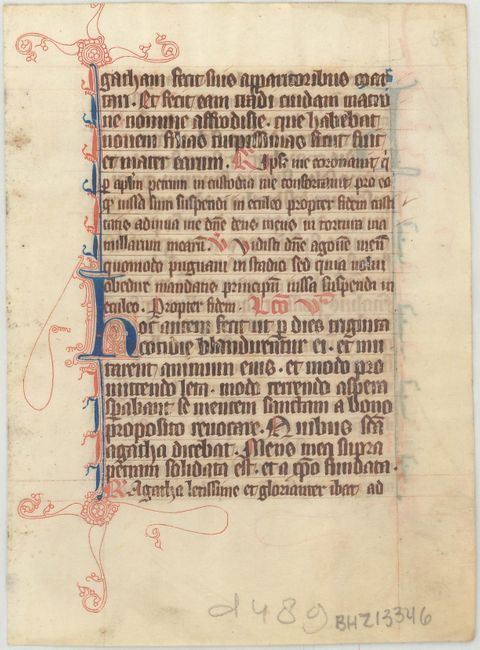 gatham fecit suis apparitoribus coar
tari. Et fecit eam tradi cuidam matro
ne nomine affrodisie. que habebat
nouem filias turpissimas sicut fuit
et mater earum. R Ipse me coronauit q
p aplm petrum in custodia me confortauit pro eo
qr iussa sum suspendi in eculeo propter fidem casti
tatis adiuua me dne deus meus in tortura ma
millarum mearum. V Vidisti dne agonem meum
quomodo pugnaui in stadio sed quia nolui
obedire mandatis principum iussa suspendi in
eculeo. Propter fidem. Lco V
hoc autem fecit ut p dies triginta
cotidie blandirentur ei. et mu
tarent animum eius. et modo pro
mittendo leta. modo terrendo aspera
sperabant se mentem sanctam a bono
proposito reuocare. Quibus sca
agatha dicebat. Mens mea supra
petram solidata est. et a xpo fundata.
R Agatha letissime et glorianter ibat ad
d489 BHZ13346